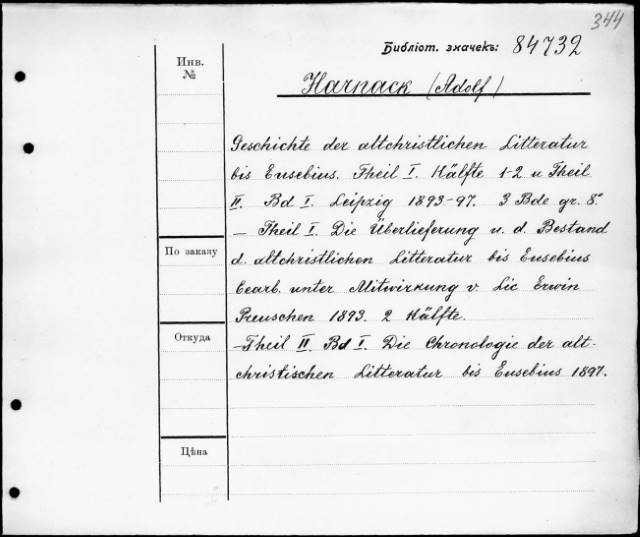 344
Библіот. значекъ: 84732
Инв.
№
Harnack (Adolf)
Geschichte der altchristlichen Litteratur
bis Eusebius. Theil I. Hälfte 1-2 u Theil
II. Bd I. Leipzig 1893-97. 3 Bde gr. 8°
— Theil I. Die Überlieferung u. d. Bestand
По заказу
d. altchristlichen Litteratur bis Eusebius
bearb. unter Mitwirkung v. Lic Erwin
Preuschen 1893. 2 Hälfte.
Откуда
— Theil II. Bd I. Die Chronologie der alt-
christischen Litteratur bis Eusebius 1897.
Цѣна